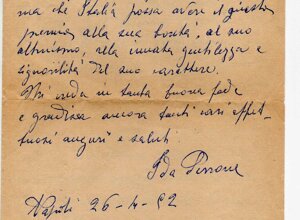 ma che Italia possa avere il giusto
premio alla sua bontà, al suo
altruismo, alla innata gentilezza e
signorilità del suo carattere.
Mi creda in tanta buona fede
e gradisca ancora tanti cari affet-
tuosi auguri e saluti
Ida Perrone
Napoli 26-4-52